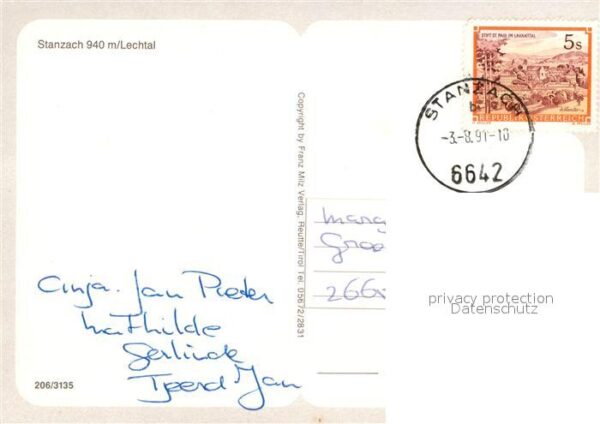 Stanzach 940 m/Lechtal
STIFT ST. PAUL IM LAVANTTAL
5s
REPUBLIK ÖSTERREICH
STANZACH
b
-3.-8.91-10
6642
Copyright by Franz Milz Verlag, Reutte/Tirol Tel. 05672/2831
marg
Groe
266
privacy protection
Datenschutz
Anja. Jan Pieter
Mathilde
Gerlinde
Tjeerd Jan
206/3135